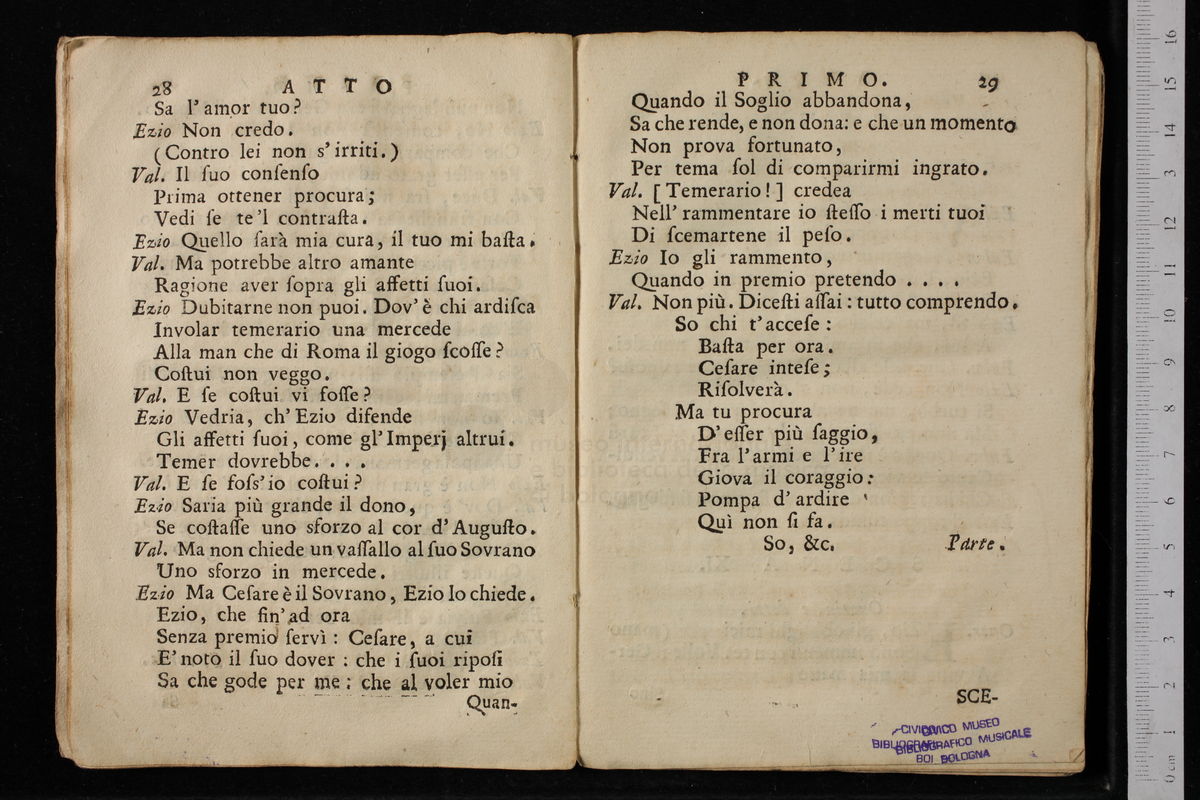 28 ATTO
Sa l'amor tuo?
Ezio Non credo.
(Contro lei non s'irriti.)
Val. Il ſuo conſenſo
Prima ottener procura;
Vedi ſe te 'l contraſta.
Ezio Quello ſarà mia cura, il tuo mi baſta.
Val. Ma potrebbe altro amante
Ragione aver ſopra gli affetti ſuoi.
Ezio Dubitarne non puoi. Dov' è chi ardiſca
Involar temerario una mercede
Alla man che di Roma il giogo ſcoſſe?
Coſtui non veggo.
Val. E ſe coſtui vi foſſe?
Ezio Vedria, ch' Ezio difende
Gli affetti ſuoi, come gl'Imperj altrui.
Temer dovrebbe. . . .
Val. E ſe foſs'io coſtui?
Ezio Saria più grande il dono,
Se coſtaſſe uno sforzo al cor d'Auguſto.
Val. Ma non chiede un vaſſallo al ſuo Sovrano
Uno sforzo in mercede.
Ezio Ma Ceſare è il Sovrano, Ezio lo chiede.
Ezio, che fin' ad ora
Senza premio ſervì: Ceſare, a cui
E' noto il ſuo dover: che i ſuoi ripoſi
Sa che gode per me: che al voler mio
Quan-
PRIMO. 29
Quando il Soglio abbandona,
Sa che rende, e non dona: e che un momento
Non prova fortunato,
Per tema ſol di comparirmi ingrato.
Val. [Temerario!] credea
Nell' rammentare io ſteſſo i merti tuoi
Di ſcemartene il peſo.
Ezio Io gli rammento,
Quando in premio pretendo . . . .
Val. Non più. Diceſti aſſai: tutto comprendo.
So chi t'acceſe:
Baſta per ora.
Ceſare inteſe;
Riſolverà.
Ma tu procura
D'eſſer più ſaggio,
Fra l'armi e l'ire
Giova il coraggio:
Pompa d'ardire
Quì non ſi fa.
So, &c. Parte.
SCE-
CIVICO MUSEO
BIBLIOGRAFICO MUSICALE
BOLOGNA